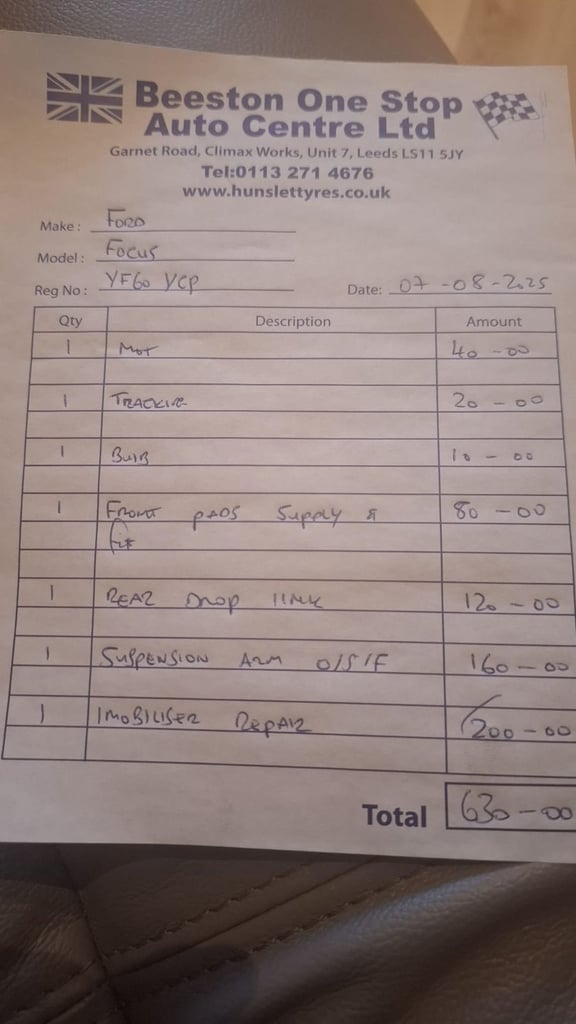 Beeston One Stop
Auto Centre Ltd
Garnet Road, Climax Works, Unit 7, Leeds LS11 5JY
Tel:0113 271 4676
www.hunslettyres.co.uk
Make: FORD
Model: FOCUS
Reg No: YF60 YCP Date: 07-08-2025
Qty Description Amount
1 MOT 40-00
1 TRACKING 20-00
1 BULB 10-00
1 FRONT PADS Supply & 80-00
fit
1 REAR DROP LINK 120-00
1 SUSPENSION ARM O/S/F 160-00
1 IMOBILISER REPAIR 200-00
Total 630-00